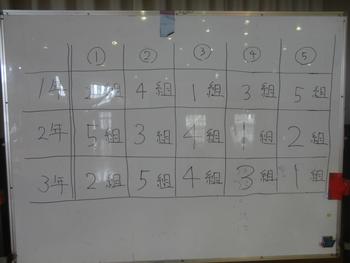 ① ② ③ ④ ⑤
1年 2組 4組 1組 3組 5組
2年 5組 3組 4組 1組 2組
3年 2組 5組 4組 3組 1組